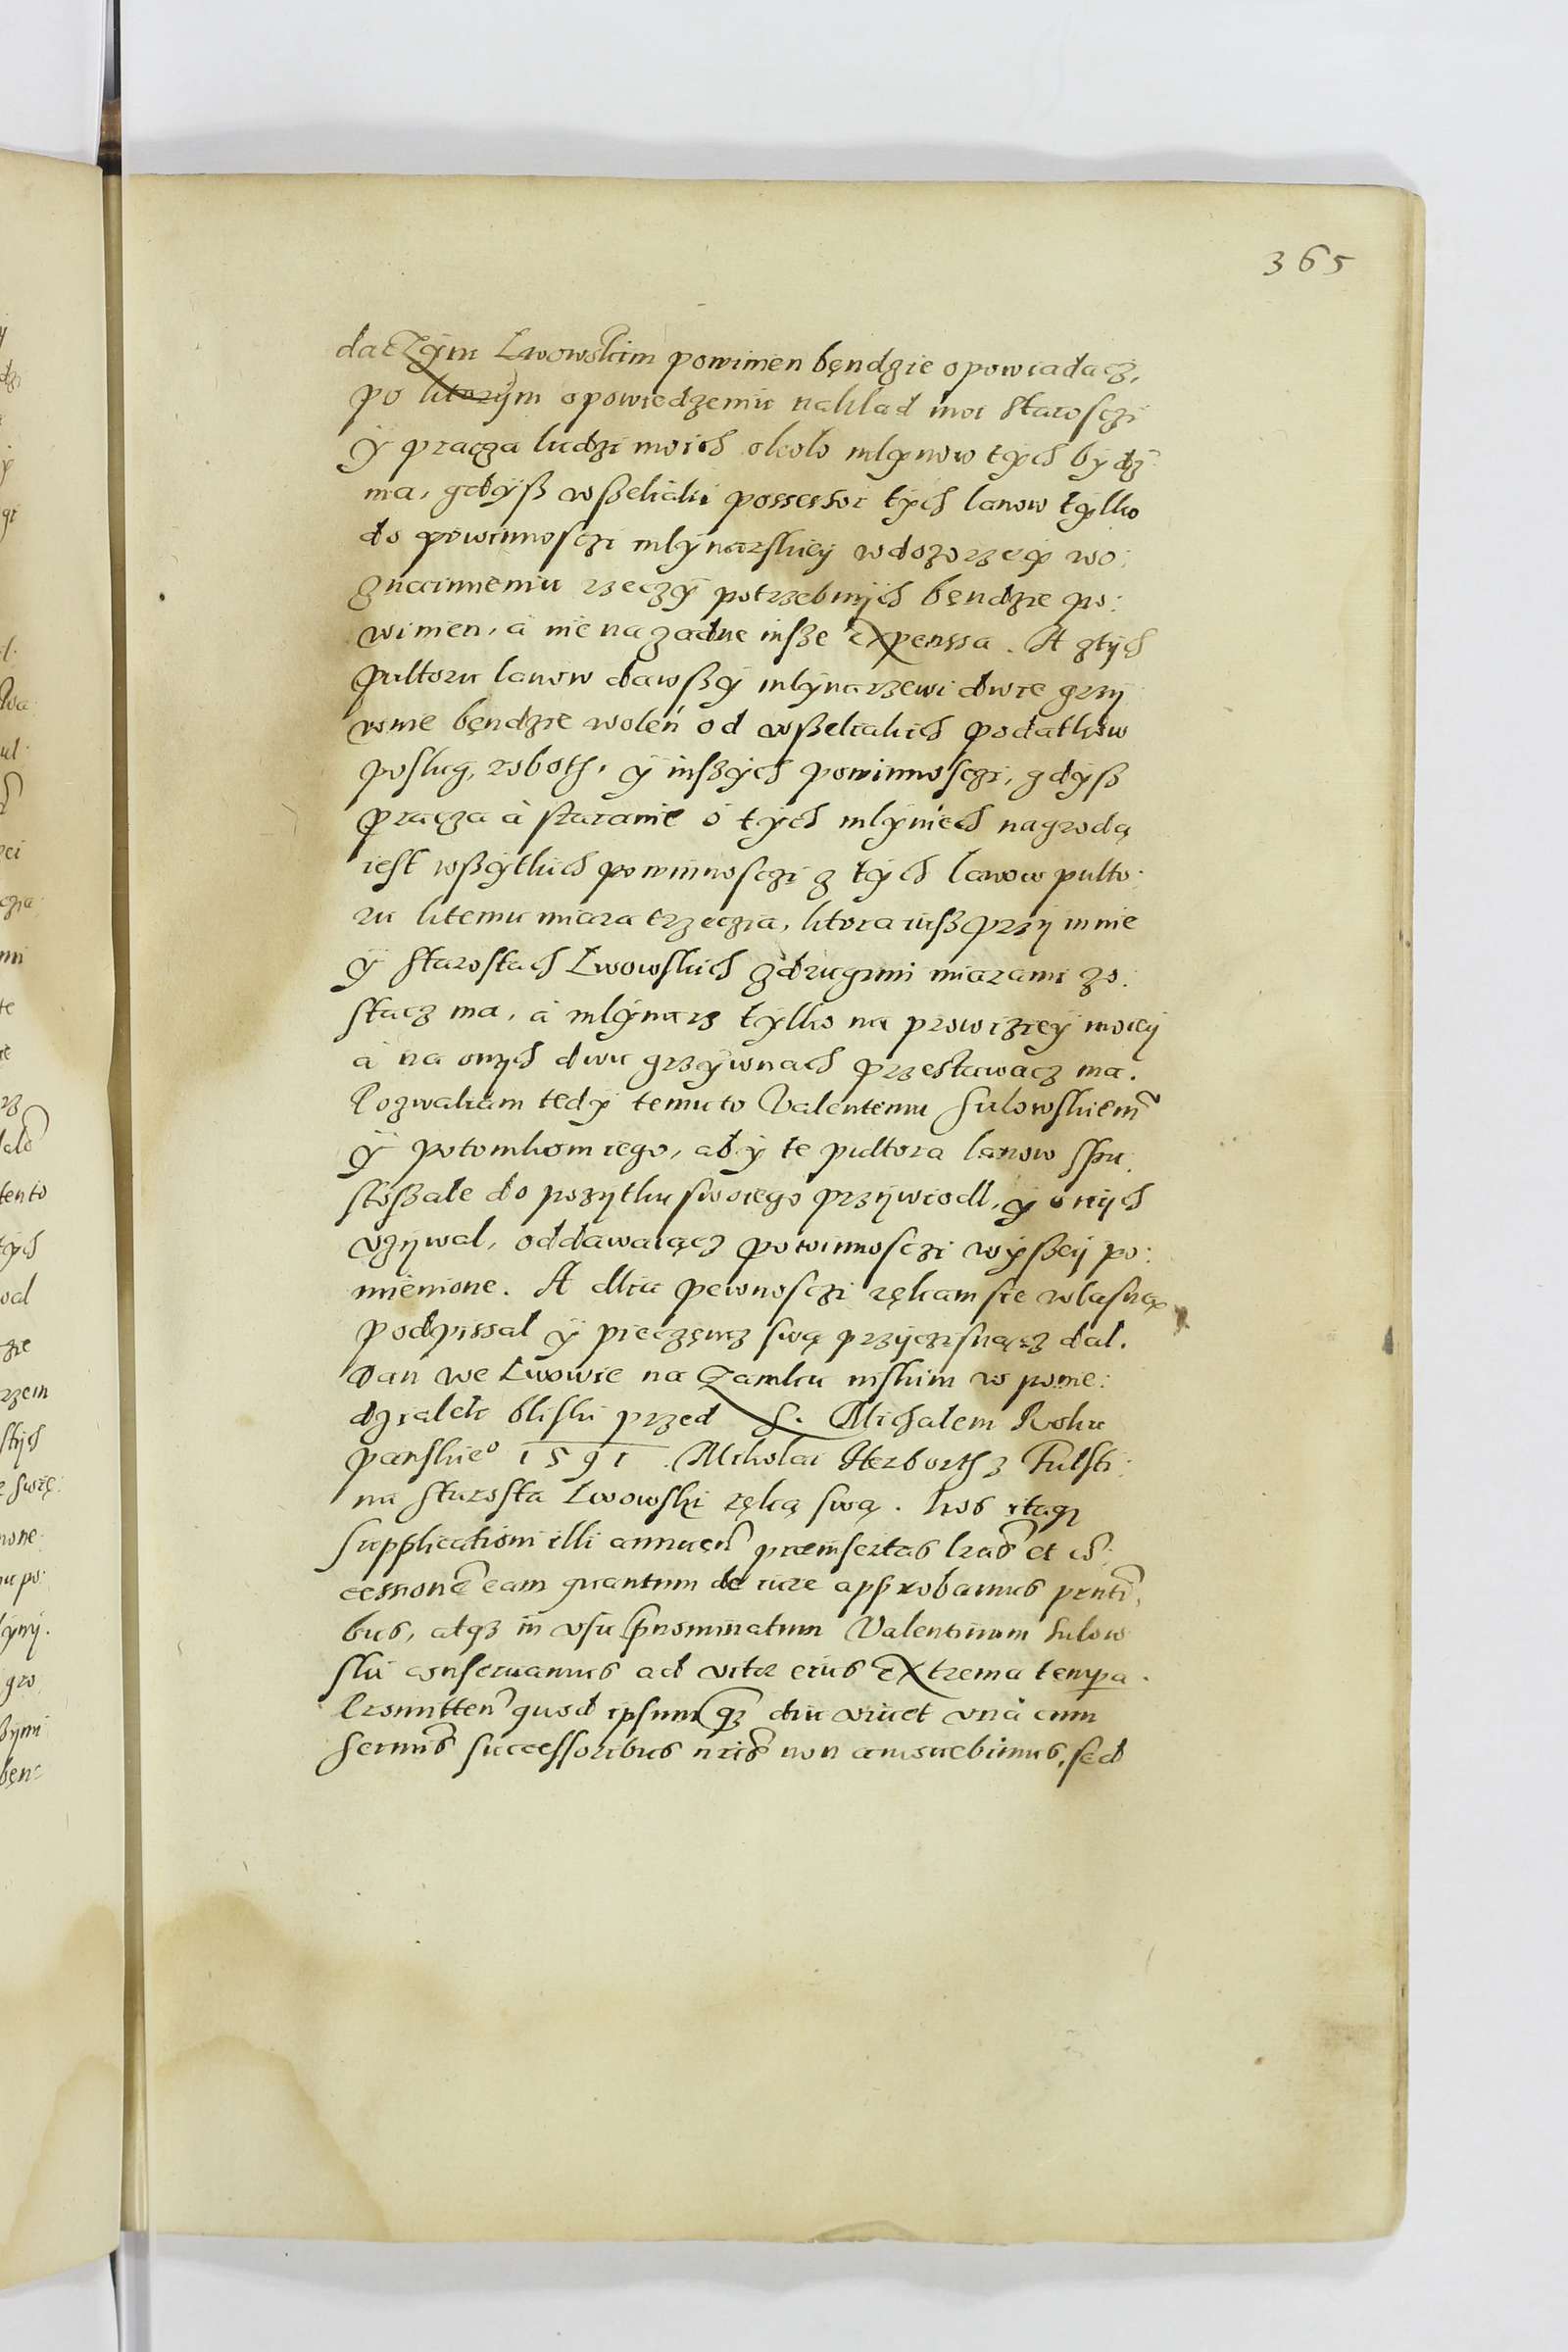 365
daczÿm Lwowskim powinien bęndzie opowiadacz,
po ktorÿm opowiedzeniu naklad moi starosczi
ÿ pracza ludzi moich okolo mlÿnow tÿch bÿdz
ma, gdÿß wßeliaki possessor tÿch lanow tÿlko
do powinnosczi mlÿnarskieÿ w dozorze ÿ wo:
znaimieniu rzeczÿ potrzebnÿch bęndzie po:
winien, à nie na zadne inße expenssa. A ztÿch
pultoru lanow dawßÿ mlÿnarzewi dwie grzÿ
wnie bęndzie woleń od wßeliakich podatkow
poslug, roboth, ÿ inßÿch powinnosczi, gdÿß
pracza à staranie o tÿch mlÿniech nagrodą
iest wßÿtkich powinnosczi z tÿch lanow pulto:
ru ktemu miara trzeczia, ktora iuß przÿ mnie
ÿ starostach Lwowskich z drugimi miarami zo:
stacz ma, à mlÿnarz tÿlko na prowizieÿ moieÿ
à na onÿch dwu grzÿwnach przestawacz ma.
Pozwaliam tedÿ temuto Valentemu Sulowskiem̃
ÿ potomkom iego, abÿ te pultora lanow spu:
stoßale do pozÿtku swoiego przÿwiodl, ÿ onÿch
vzÿwal, oddawaiącz powinnosczi wÿßeÿ po:
mienione. A dlia pewnosczi ręką m sie wlasną
podpissal ÿ pieczęncz swą przÿczisnącz dal.
Dan we Lwowie na Zamku niskim w ponie:
dzialek bliski przed S. Michalem Roku
panskie° 1591. Mikolai Herborth z Fulsti:
na starosta Lwowski ręką swą. Nos itaqȝ
supplicationi illi annuen̄ praeinsertas lr̄as et con̄:
cessionē eam quantum de iure approbamus pn̄ti:
bus, atqȝ in vsu p̄nominatum Valentinum Sulow
ski conseruamus ad vitæ eius extrema tempa.
Promitten̄ quod ipsum qȝ diu viuet vnà cum
Sermīs successoribus nr̄is non amouebimus, sed